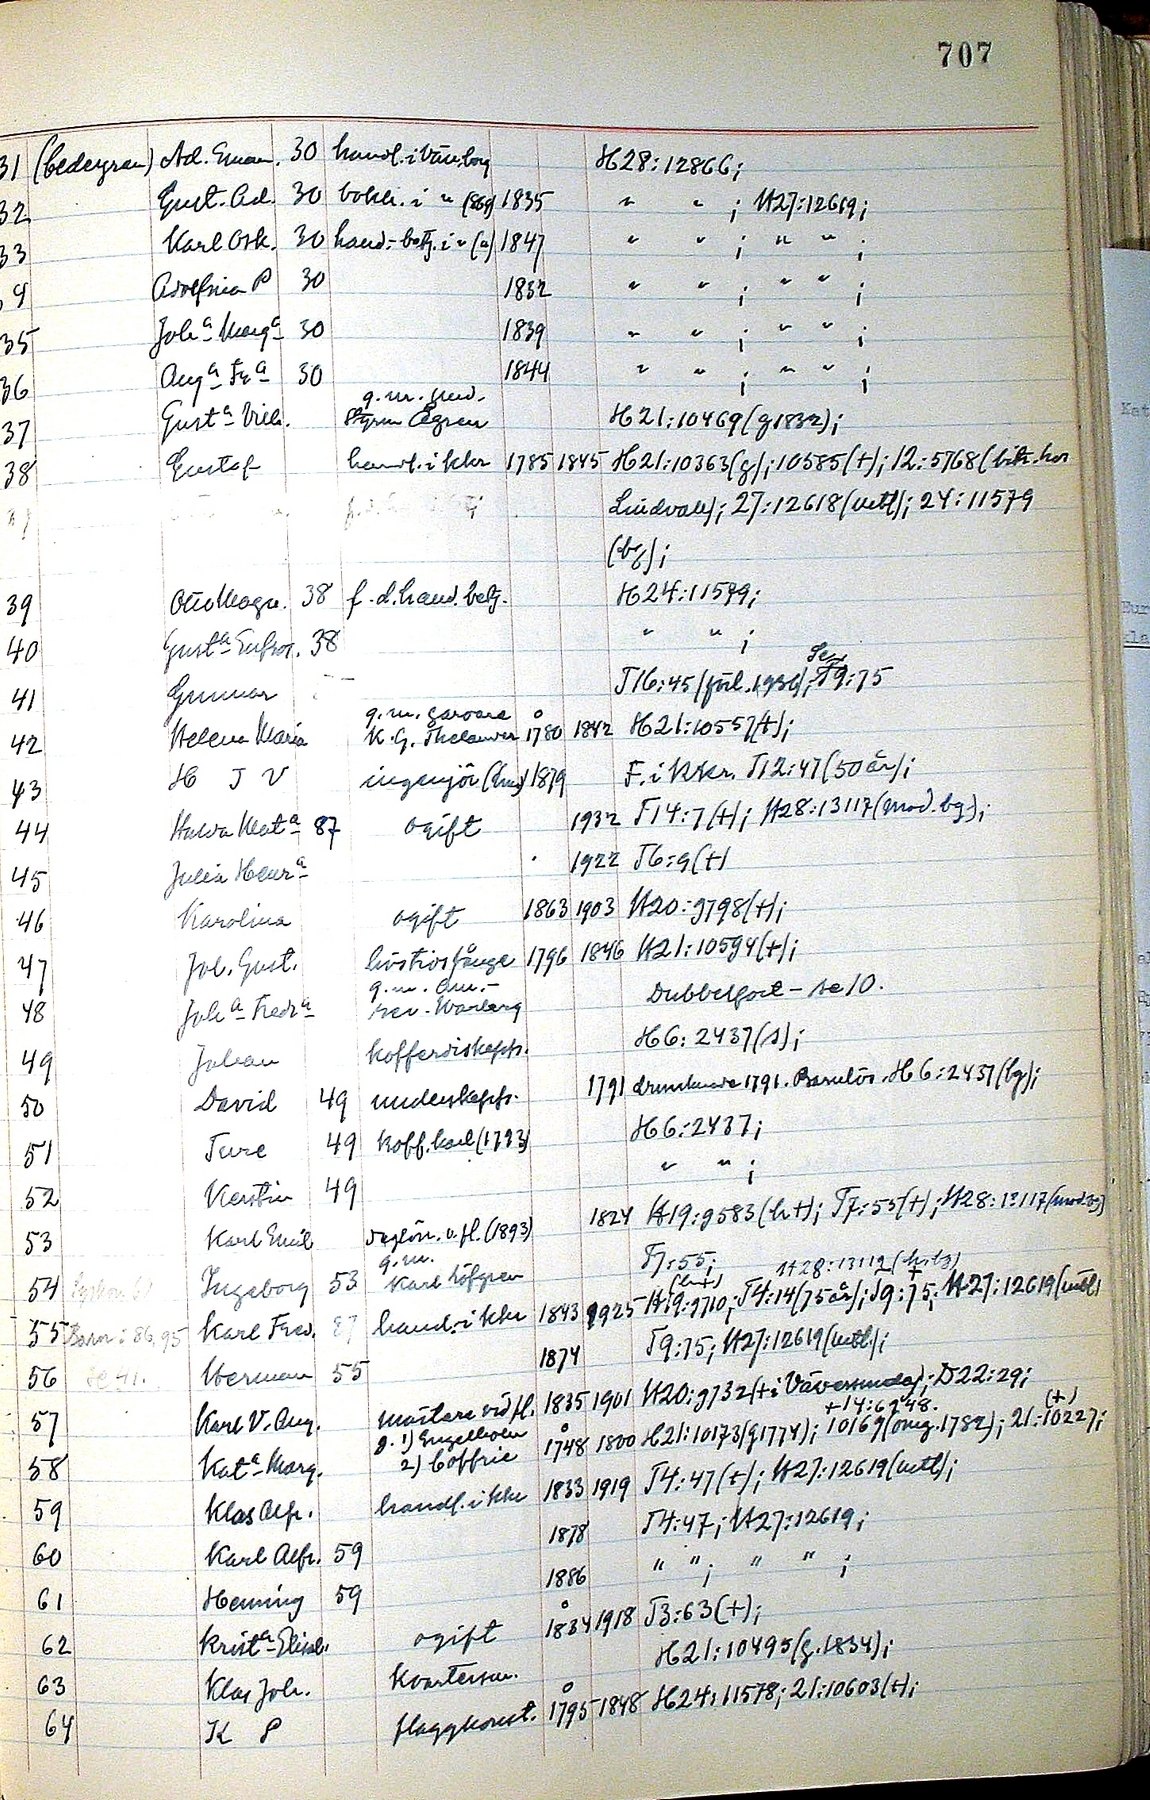 707
31 (Cedergren) Ad. Eman. 30 handl. i Vän.borg H28:12866;
32 Gust. Ad. 30 bokh. i " (869) 1835 " " ; H27:12619;
33 Karl Osk. 30 hand.-betj. i " (") 1847 " " ; " " ;
34 Adolfina P 30 1832 " " ; " " ;
35 Joh:a Marg:a 30 1839 " " ; " " ;
36 Aug:a Fr:a 30 1844 " " ; " " ;
37 Gust:a Vilh. g. m. und. Styrm Ågren H21:10469 (g 1832);
38 Gustaf handl. i kkr 1785 1845 H21:10363 (g); 10585 (+); 12:5768 (
Lindvall); 27:12618 (utfl); 24:11579
(bg);
39 Otto Magn. 38 f.d. hand. betj. H24:11579;
40 Gust:a Eufros. 38 " " ;
41 Gunnar T16:45 (föd. 1936); Se T9:75
42 Helena Maria g. m. garvare K. G. Thelander 1780 1842 H21:10557 (+);
43 H J V ingenjör 1879 F. i Kkr. T12:47 (50 år);
44 Mat:a 87 ogift 1932 T14:7 (+); H28:13117 (mod. bg);
45 Julia Henr:a 1922 T6:9 (+)
46 Karolina ogift 1863 1903 H20:9798 (+);
47 Joh. Gust. livstidsfånge 1796 1846 H21:10594 (+);
48 Joh:a Fredr:a g. m. Warberg Dubbelfört - se 10.
49 Johan kofferdiskepp. H6:2437 (s);
50 David 49 underskepp. 1791 drunknade 1791. Barnlös. H6:2437 (bg);
51 Ture 49 koff. karl (1793) H6:2437;
52 Kerstin 49 " " ;
53 Karl Emil daglön. o. fl. (1893) 1824 H19:9583 (h+); T7:55 (+); H28:13117 (mod. bg)
54 Ingeborg 53 g. m. Karl Löfgren T7:55; H28:13112
55 Barn: 86, 95 Karl Fred. 87 handl. i kkr 1843 1925 H19:9710; T4:14 (75 år); T9:75; H27:12619 (utfl)
56 Se 41. Herman 55 1874 T9:75; H27:12619 (utfl.);
57 Karl V. Aug. mästare vid fl. 1835 1901 H20:9732 (+ i Väversunda); D22:29;
58 Kat:a Marg. g. 1) Engelholm 2) Coffrie 1748 1800 H21:10173 (g 1774); 10169 (omg. 1782); 21:10227; (+)
59 Klas Alfr. handl. i kkr 1833 1919 T4:47 (+); H27:12619 (utfl);
60 Karl Alfr. 59 1878 T4:47; H27:12619;
61 Henning 59 1886 " " ; " " ;
62 Krist:a Elisab. ogift 1834 1918 T3:63 (+);
63 Klas Joh. Kvarterm. H21:10495 (g. 1834);
64 K P flaggkonst. 1795 1848 H24:11578; 21:10603 (+);